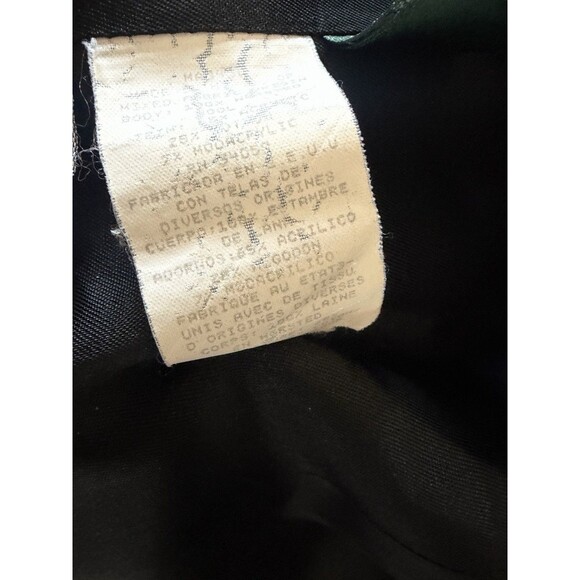 MADE
MIXED
BODY: 100%
TRIM:
28%
7% MODACRYLIC
RN 54050
FABRICADA EN E.U.U
CON TELAS DE
DIVERSOS ORIGINES
CUERPO: 100% ESTAMBRE
DE LANA
ADORNOS: 65% ACRILICO
28% ALGODON
7% MODACRILICO
FABRIQUE AU ETATS-
UNIS AVEC DE TISSU
D'ORIGINES DIVERSES
CORPS: 100% LAINE
EN WORSTED